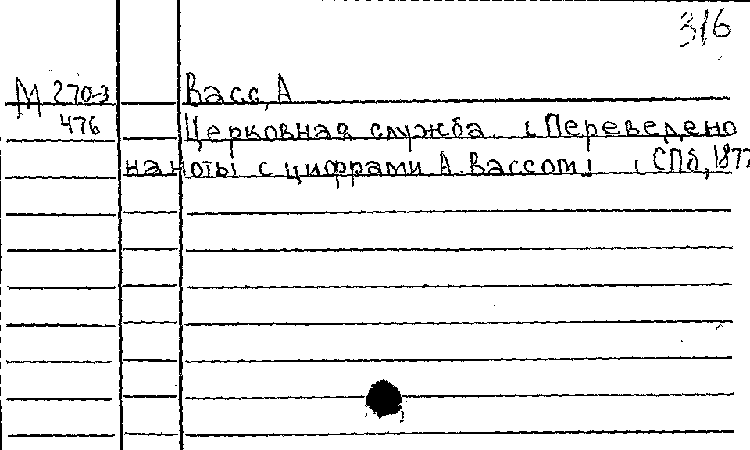 316
М 270-3 Васс, А
476 Церковная служба. [Переведено
на ноты с цифрами А. Вассом] [СПб, 1877